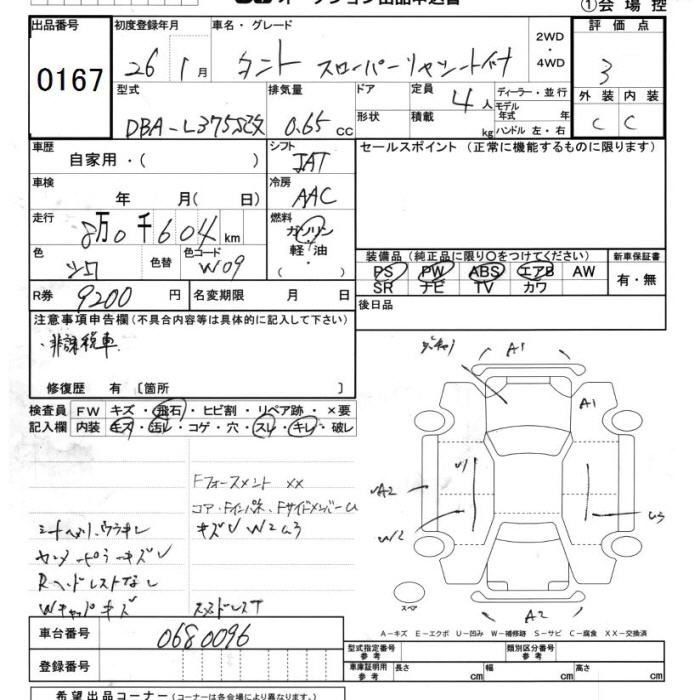 オークション出品申込書
①会場控
出品番号 初度登録年月 車名・グレード 2WD・4WD 評価点
0167 26 1月 タント スローパーリヤシート付 3
型式 排気量 ドア 定員 4人 ディーラー・並行 外装 内装
DBA-L375S改 0.65 cc 形状 積載 kg モデル年式 年 ハンドル 左・右 C C
車歴 自家用・( ) シフト IAT セールスポイント (正常に機能するものに限ります)
車検 年 月( 日) 冷房 AAC
走行 8万0千604km 燃料 ガソリン 軽・油 ・( )
色 シロ 色替 色コード W09
装備品 (純正品に限り○をつけてください) 新車保証書
PS PW ABS エアB AW 有・無
SR ナビ TV カワ
R券 9200円 名変期限 月 日 後日品
注意事項申告欄(不具合内容等は具体的に記入して下さい)
・非課税車
修復歴 有 〔箇所 〕
検査員 FW キズ・飛石・ヒビ割・リペア跡・×要
記入欄 内装 キズ・汚レ・コゲ・穴・スレ・キレ・破レ
Fフォースメント XX
コア・Fインパネ、FサイドメンバーU
キズU W2U3
Rヘッドレストなし
Wキャップキズ
A1
A1
U1
A2
W2
U3
A2
スペア
A-キズ E-エクボ U-凹み W-補修跡 S-サビ C-腐食 XX-交換済
車台番号 0680096
登録番号
型式指定番号 参考 類別区分番号 参考
車庫証明用 参考 長さ cm 幅 cm 高さ cm
希望出品コーナー (コーナーは各会場により異なります。)